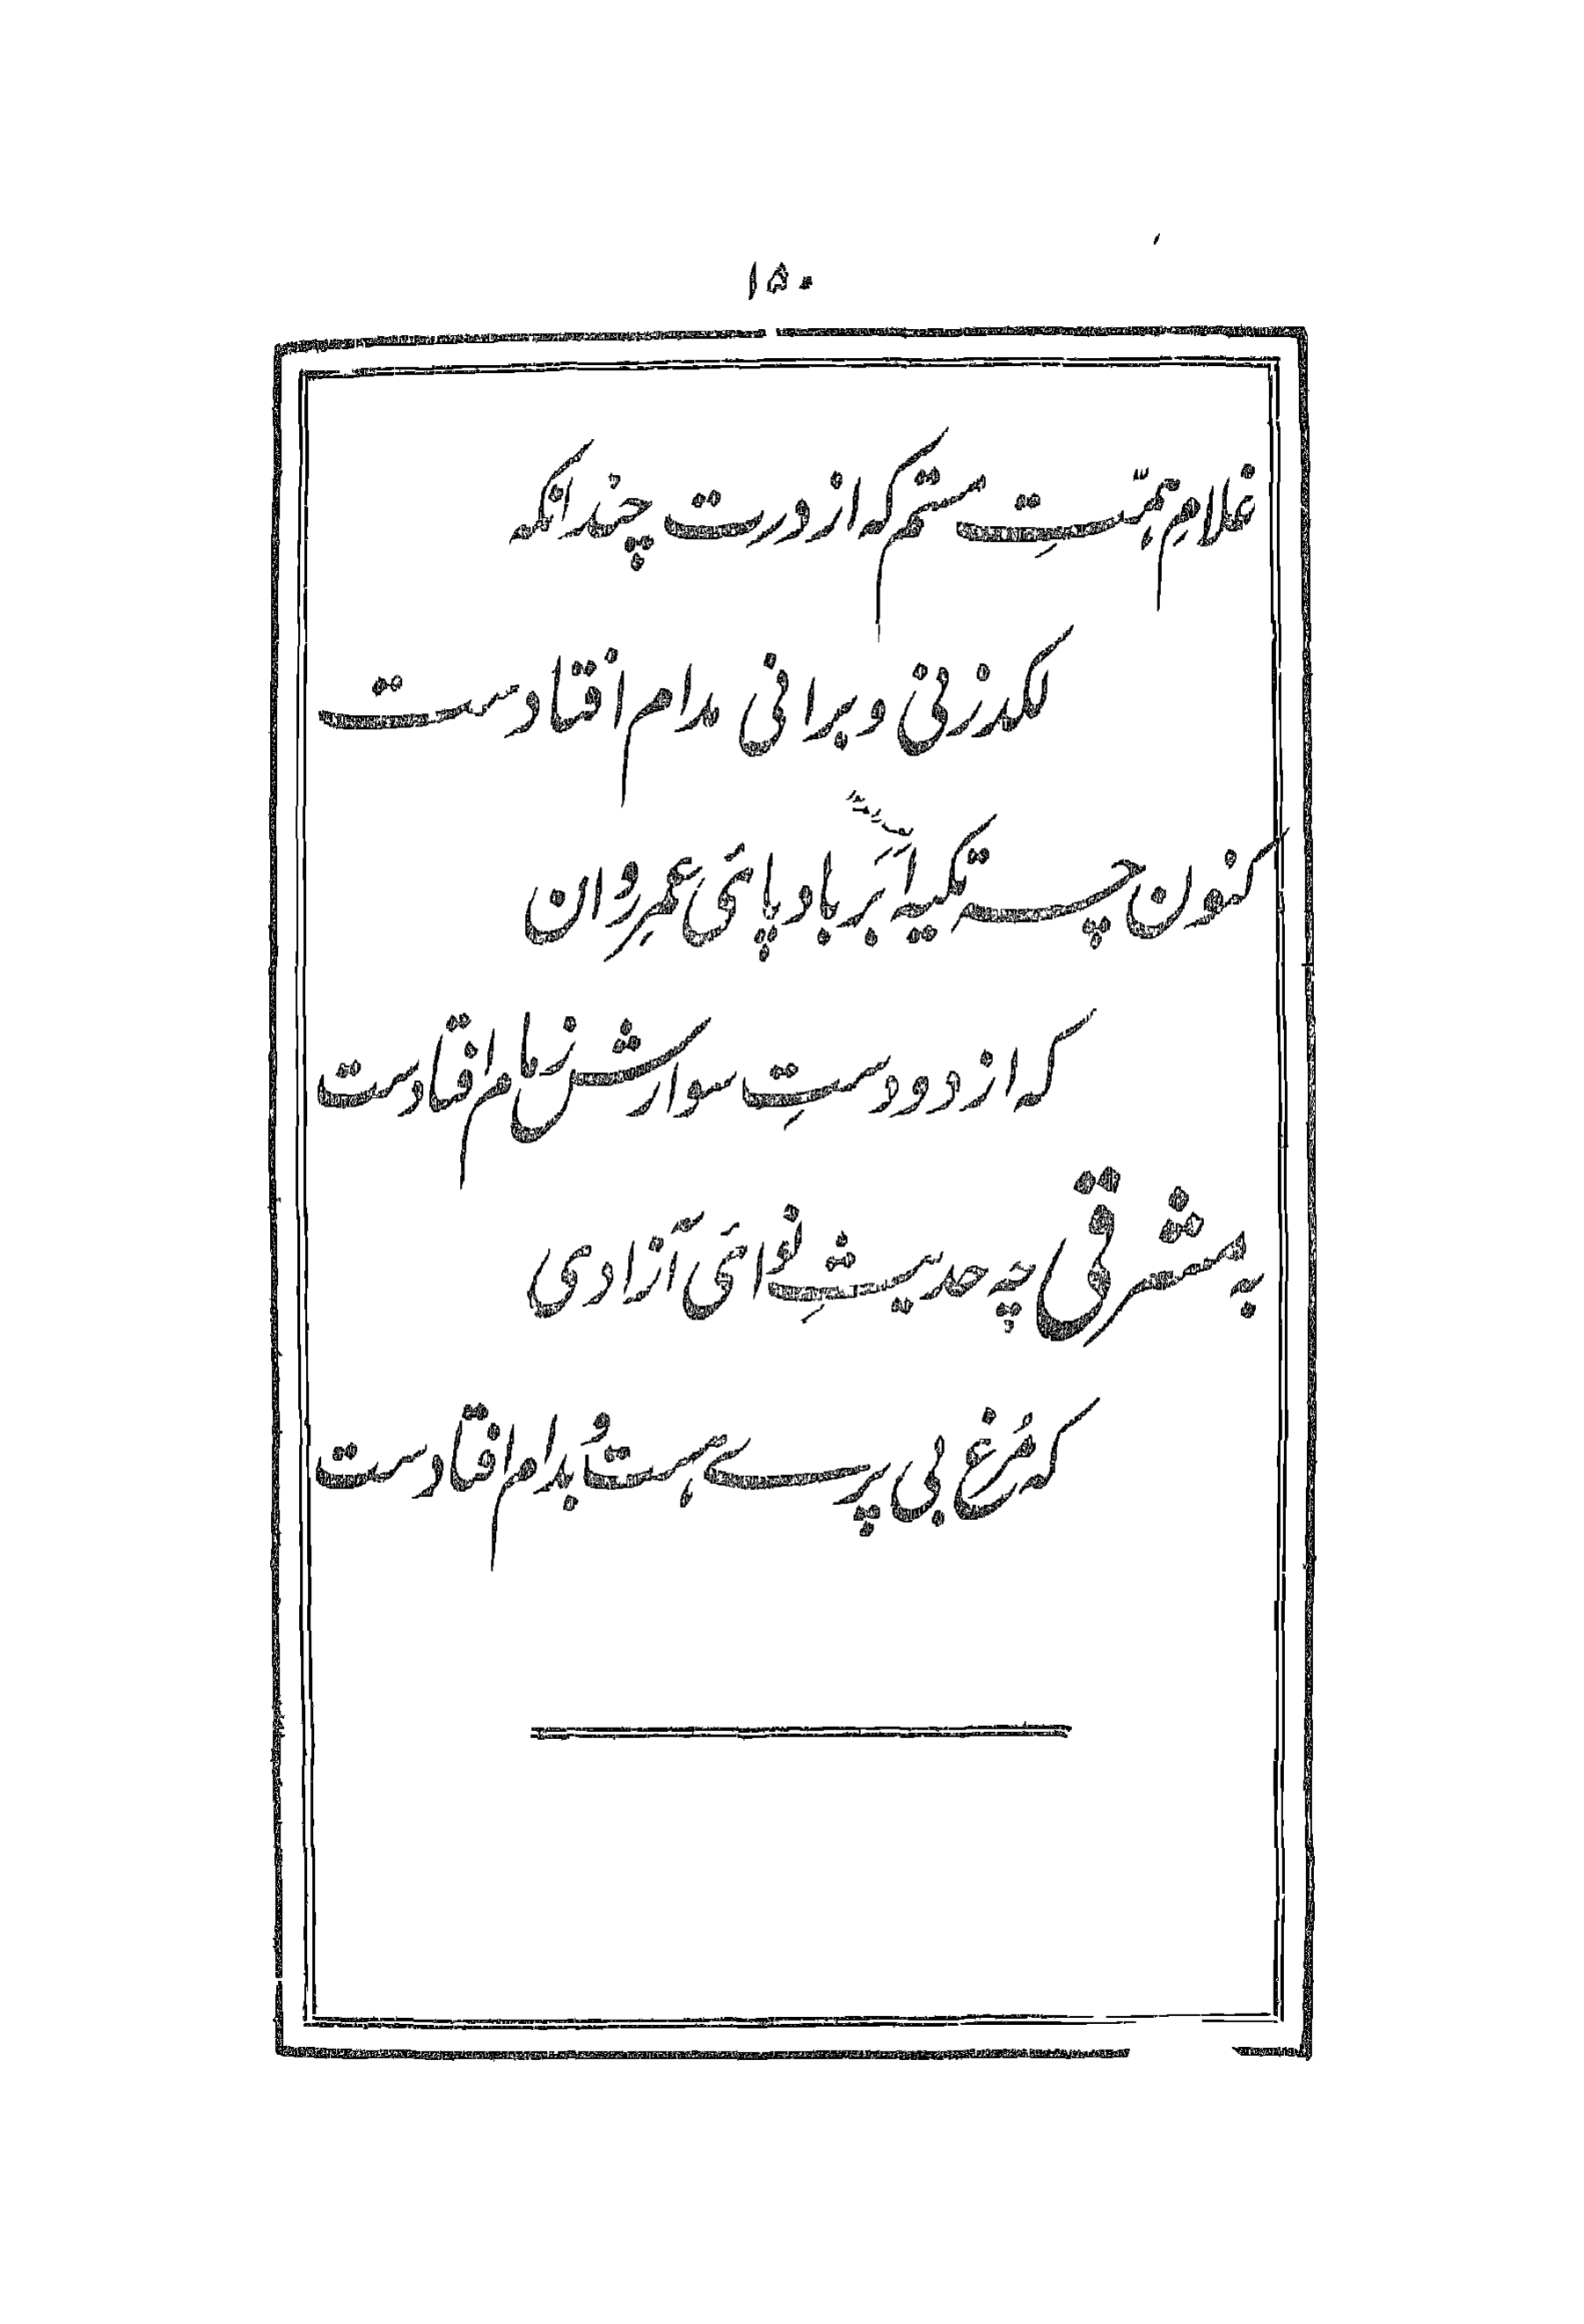 ۱۵۰
غلامِ ہمّتِ مستم که از درت چندانکه
لکد زنی و برانی مدام افتادست
کنون چه تکیه اَبَر باد پائی عمرِ روان
که از دو دستِ سوارش زمام افتادست
به مشرقی چه حدیثِ نوائی آزادی
که مُرغ بی پرے ہست وُ بدام افتادست